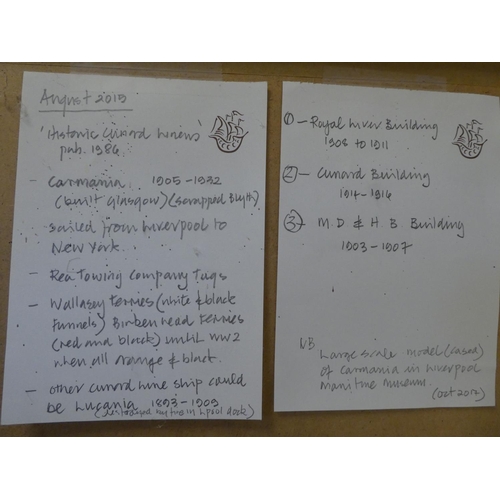 August 2015
'Historic Cunard Liners'
pub. 1986
- Carmania 1905-1932
(built Glasgow) (scrapped Blyth)
sailed from Liverpool to
New York.
- Rea Towing Company Tugs
- Wallasey ferries (white & black
funnels) Birkenhead ferries
(red and black) until WW2
when all orange & black.
- other Cunard line ship could
be Lucania 1893-1909
(destroyed by fire in L'pool dock)
1 - Royal Liver Building
1908 to 1911
2 - Cunard Building
1914-1916
3 - M.D & H.B Building
1903-1907
NB
Large scale model (cased)
of Carmania in Liverpool
Maritime Museum.
(Oct 2012)